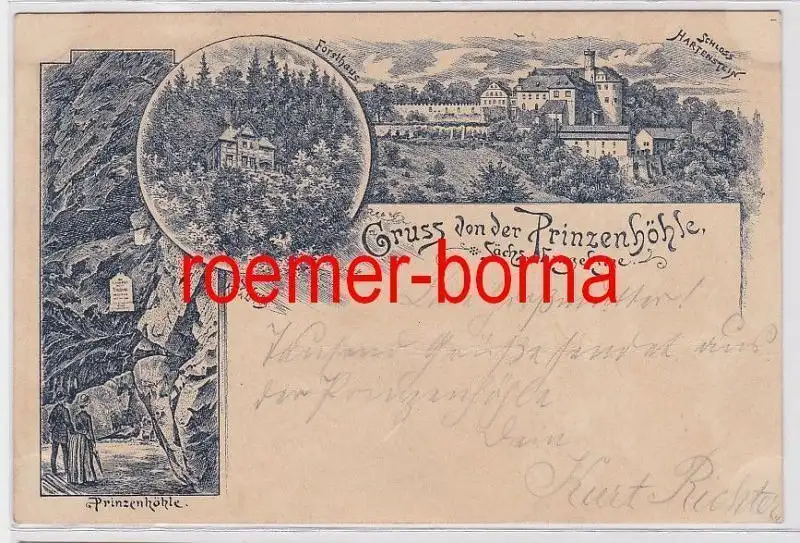 Forsthaus
SCHLOSS
HARTENSTEIN
Gruss von der Prinzenhöhle,
Sächs.
roemer-borna
Großmutter!
Tausend Grüße sendet aus
der Prinzenhöhle
Dein
Kurt Richter
Prinzenhöhle.